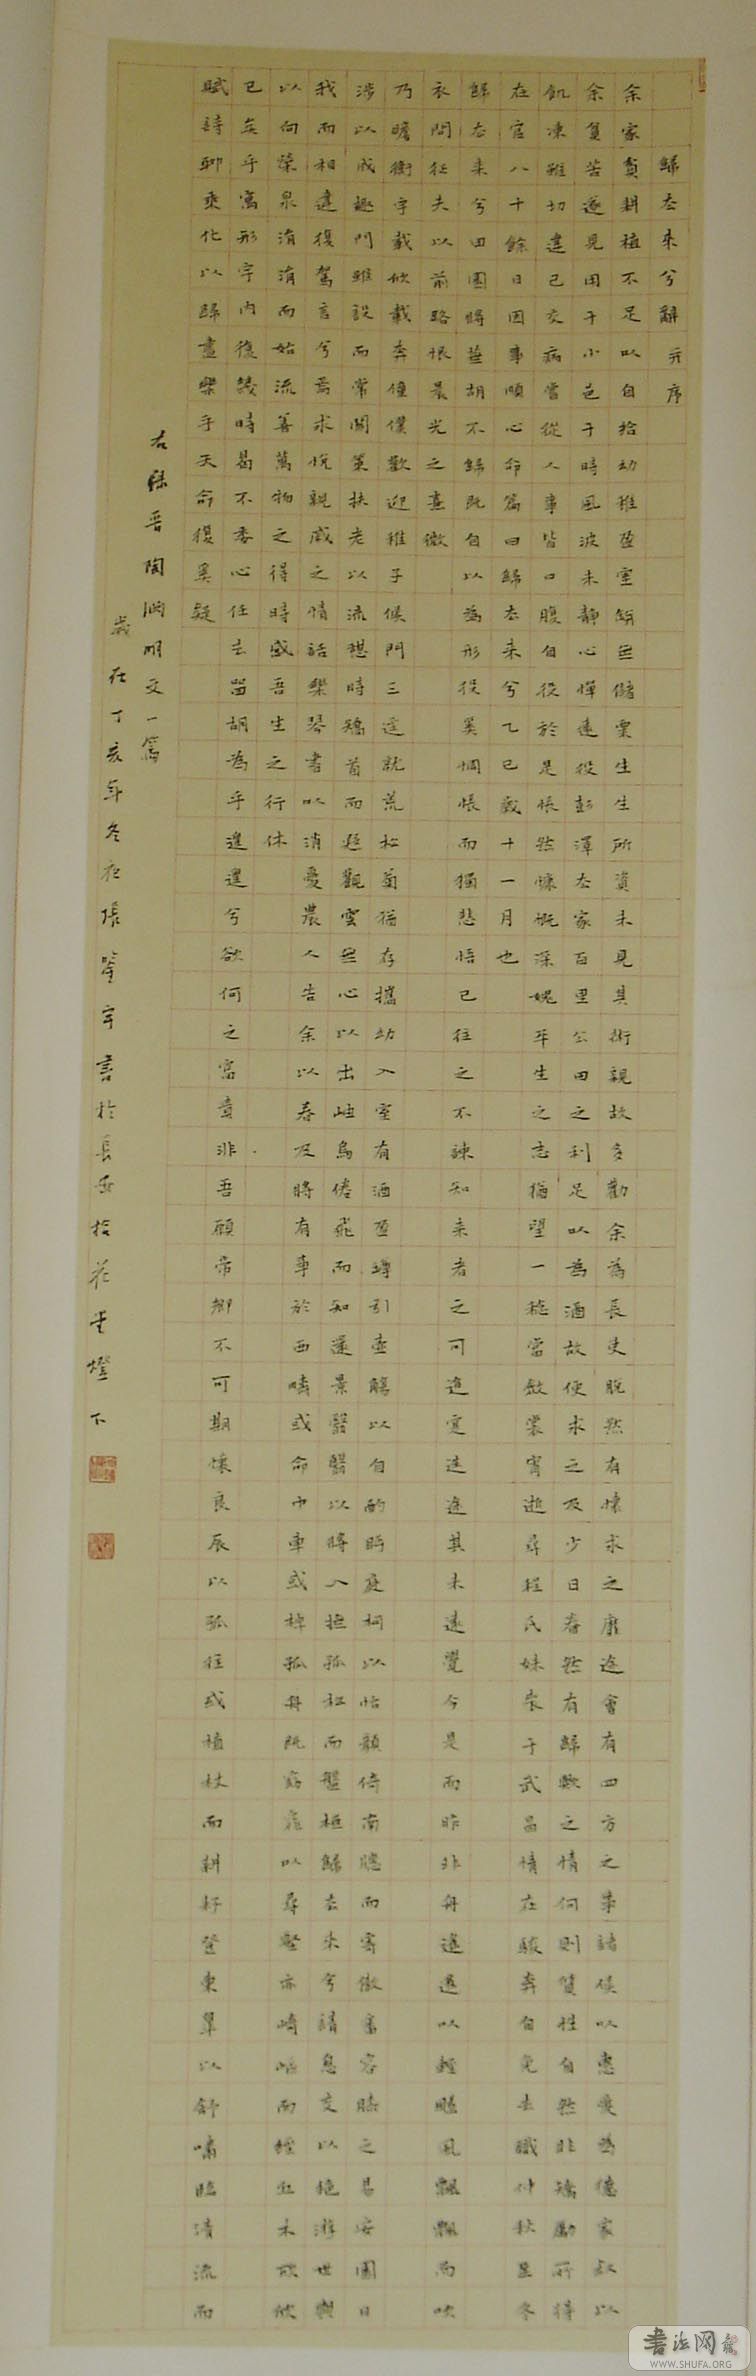 歸去來兮辭并序
余家貧耕植不足以自給幼稚盈室缾無儲粟生生所資未見其術親故多勸余為長吏脫然有懷求之靡途會有四方之事諸侯以惠愛為德家叔以
余貧苦遂見用于小邑于時風波未靜心憚遠役彭澤去家百里公田之利足以為酒故便求之及少日眷然有歸歟之情何則質性自然非矯勵所得
飢凍雖切違己交病嘗從人事皆口腹自役於是悵然慷慨深媿平生之志猶望一稔當斂裳宵逝尋程氏妹喪于武昌情在駿奔自免去職仲秋至冬
在官八十餘日因事順心命篇曰歸去來兮乙巳歲十一月也
歸去來兮田園將蕪胡不歸既自以為形役奚惆悵而獨悲悟已往之不諫知來者之可追寔迷途其未遠覺今是而昨非舟遙遙以輕颺風飄飄而吹
衣問征夫以前路恨晨光之熹微
乃瞻衡宇載欣載奔僮僕歡迎稚子候門三逕就荒松菊猶存攜幼入室有酒盈罇引壺觴以自酌眄庭柯以怡顏倚南牕而寄傲審容膝之易安園日
涉以成趣門雖設而常關策扶老以流憩時矯首而遐觀雲無心以出岫鳥倦飛而知還景翳翳以將入撫孤松而盤桓歸去來兮請息交以絕游世與
我而相違復駕言兮焉求悅親戚之情話樂琴書以消憂農人告余以春及將有事於西疇或命巾車或棹孤舟既窈窕以尋壑亦崎嶇而經丘木欣欣
以向榮泉涓涓而始流善萬物之得時感吾生之行休
已矣乎寓形宇內復幾時曷不委心任去留胡為乎遑遑兮欲何之富貴非吾願帝鄉不可期懷良辰以孤往或植杖而耕耔登東皋以舒嘯臨清流而
賦詩聊乘化以歸盡樂乎天命復奚疑
右錄晉陶淵明文一篇
歲在丁亥年冬夜張宇書於長安拾花堂燈下
书法网
WWW.SHUFA.ORG